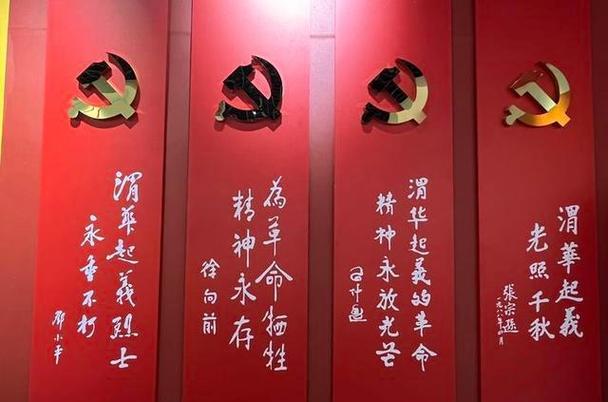 渭華起義烈士
永垂不朽
邓小平
為革命牺牲
精神永存
徐向前
渭华起義的革命
精神永放光芒
渭華起義
光照千秋
張宗遜